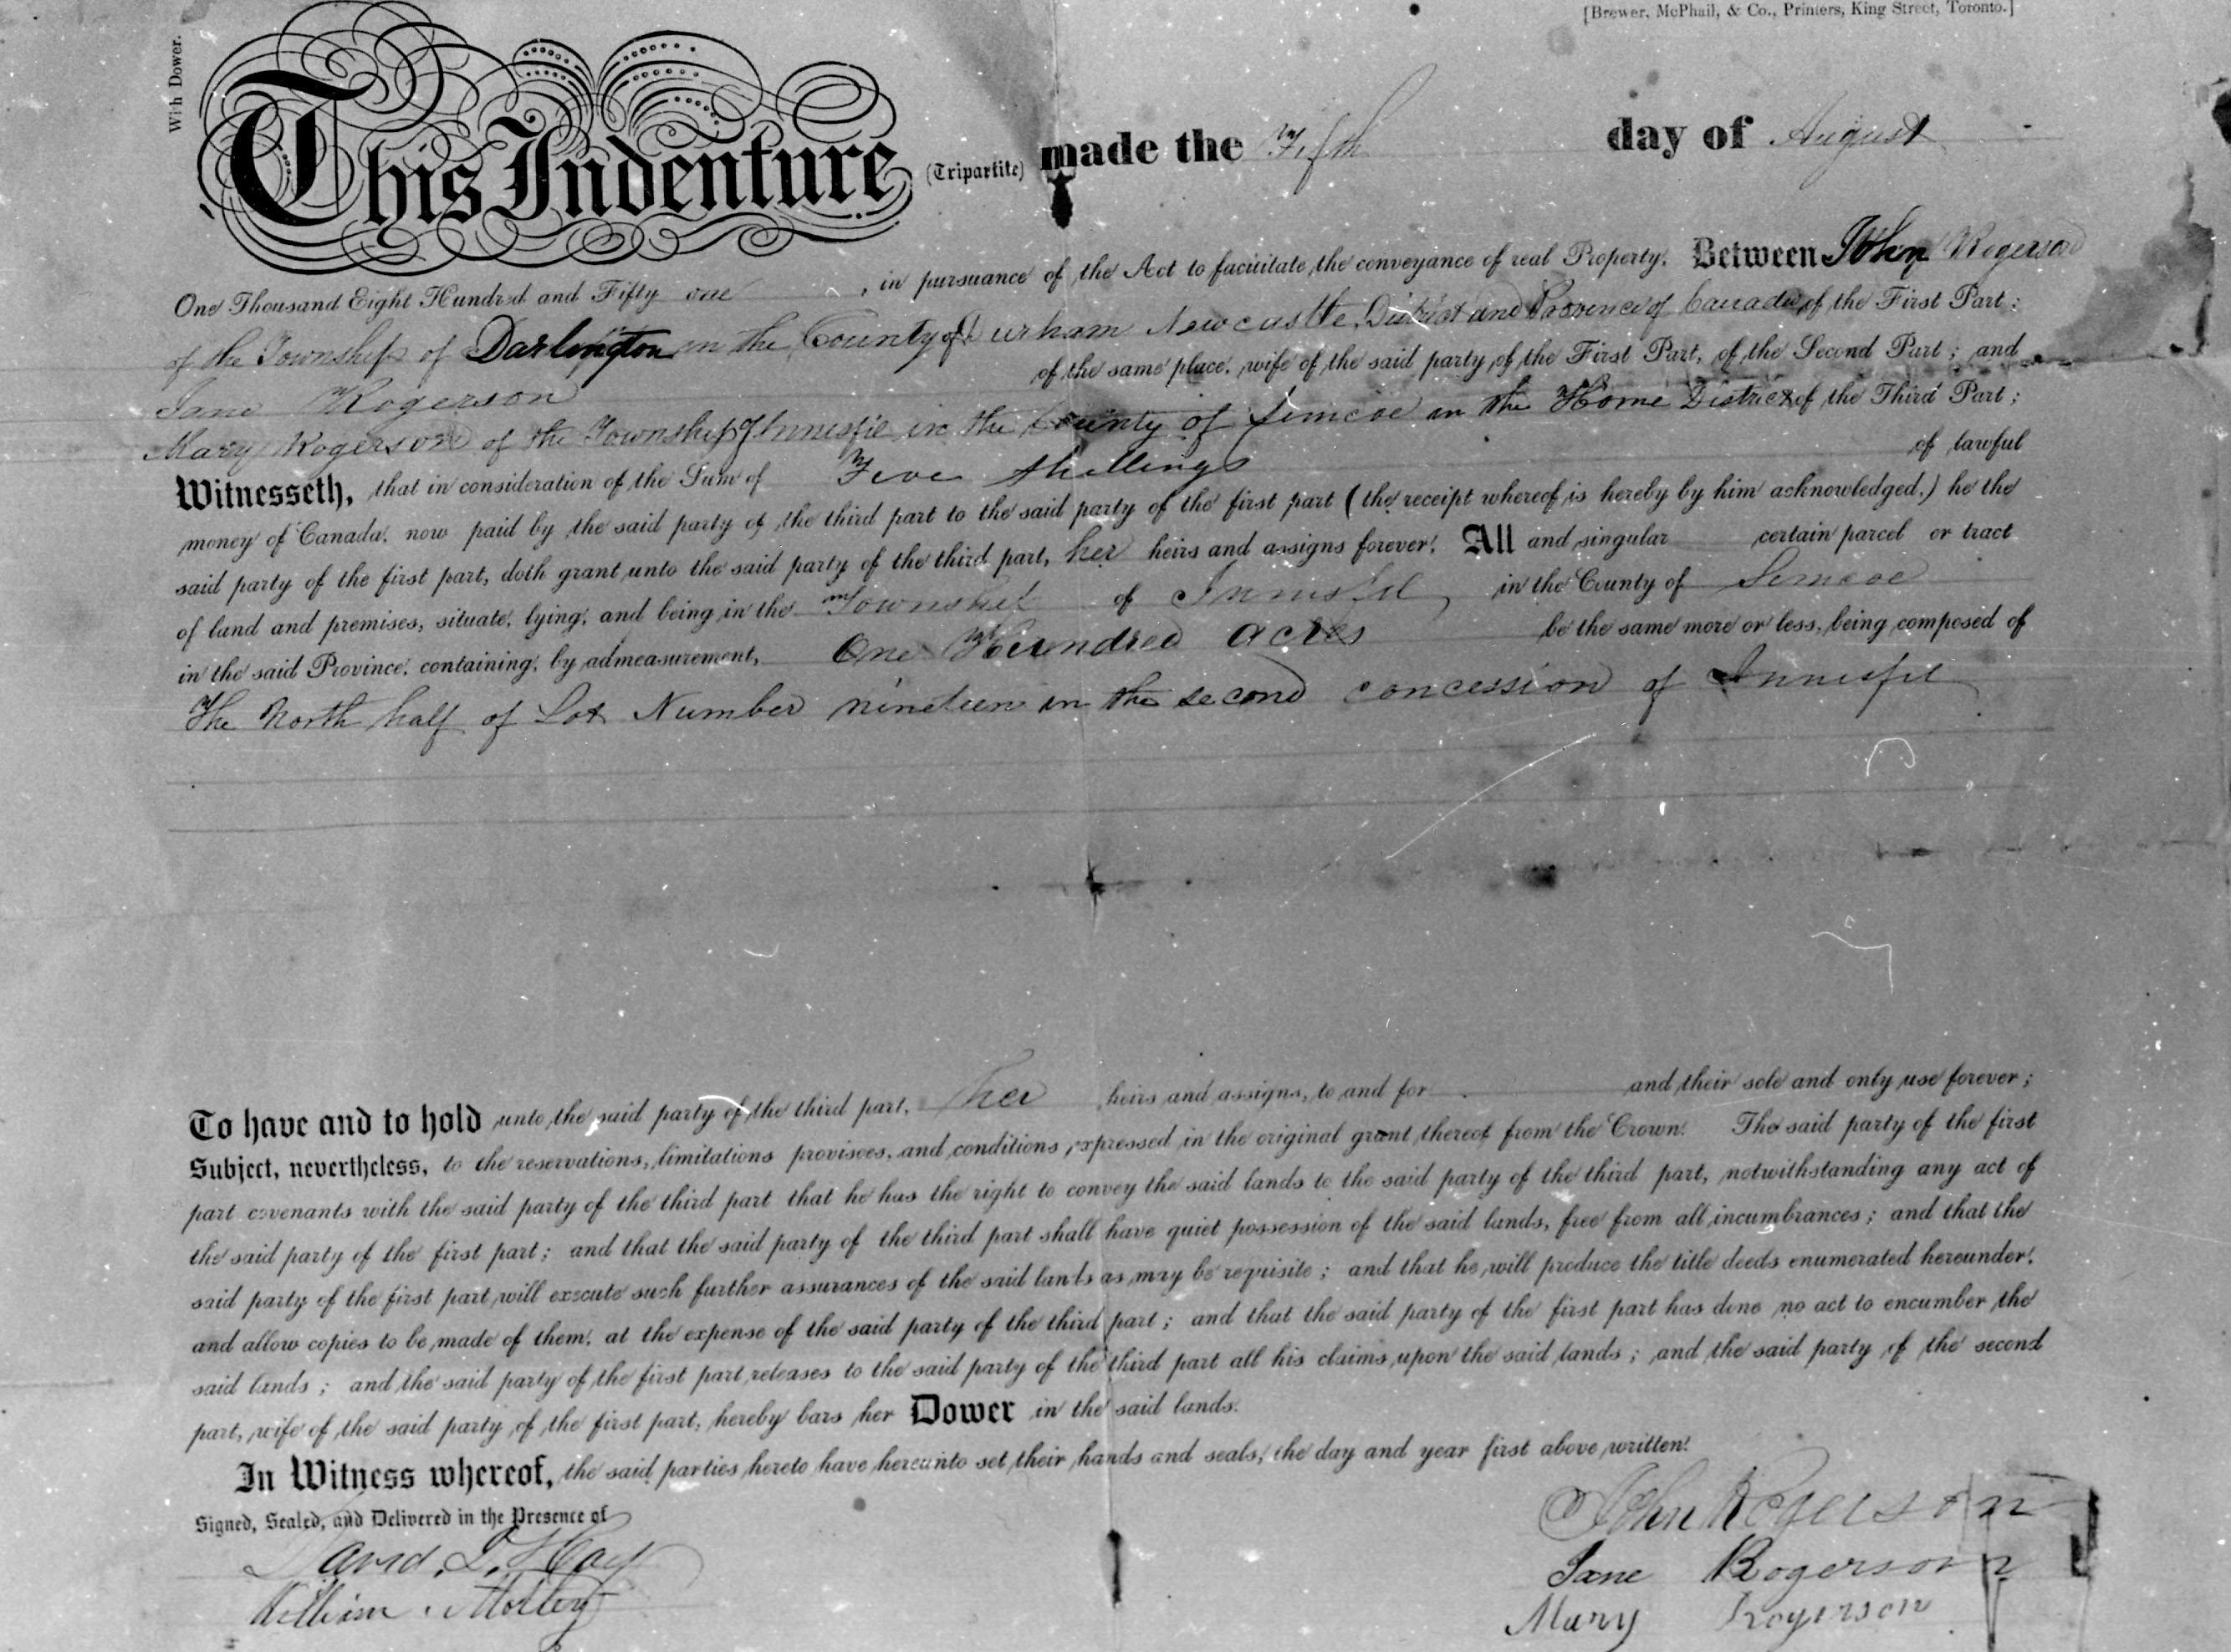 [Brewer, McPhail, & Co., Printers, King Street, Toronto.]
With Dower.
This Indenture (Tripartite) made the Fifth day of August
One Thousand Eight Hundred and Fifty one, in pursuance of the Act to facilitate the conveyance of real Property. Between John Rogerson
of the Township of Darlington in the County of Durham Newcastle District and Province of Canada of the First Part;
Jane Rogerson of the same place, wife of the said party of the First Part, of the Second Part; and
Mary Rogerson of the Township of Innisfil in the County of Simcoe in the Home District of the Third Part;
Witnesseth, that in consideration of the Sum of Five shillings of lawful
money of Canada, now paid by the said party of the third part to the said party of the first part (the receipt whereof is hereby by him acknowledged,) he the
said party of the first part, doth grant unto the said party of the third part, her heirs and assigns forever, All and singular certain parcel or tract
of land and premises, situate, lying, and being in the Township of Innisfil, in the County of Simcoe
in the said Province, containing, by admeasurement, One Hundred acres be the same more or less, being composed of
The North half of Lot Number nineteen in the second concession of Innisfil
To have and to hold unto the said party of the third part, her heirs and assigns, to and for and their sole and only use forever;
Subject, nevertheless, to the reservations, limitations provisoes, and conditions expressed in the original grant thereof from the Crown. The said party of the first
part covenants with the said party of the third part that he has the right to convey the said lands to the said party of the third part, notwithstanding any act of
the said party of the first part; and that the said party of the third part shall have quiet possession of the said lands, free from all incumbrances; and that the
said party of the first part will execute such further assurances of the said lands as may be requisite; and that he will produce the title deeds enumerated hereunder,
and allow copies to be made of them, at the expense of the said party of the third part; and that the said party of the first part has done no act to encumber the
said lands; and the said party of the first part releases to the said party of the third part all his claims upon the said lands; and the said party of the second
part, wife of the said party of the first part, hereby bars her Dower in the said lands.
In Witness whereof, the said parties hereto have hereunto set their hands and seals, the day and year first above written.
Signed, Sealed, and Delivered in the Presence of
John Rogerson
David L. Hay
Jane Rogerson
William
Mary Rogerson